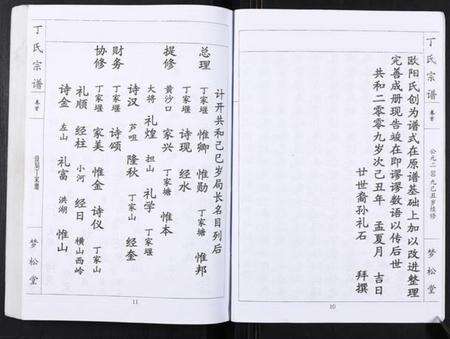 丁氏宗谱
卷首
公元二〇〇九己丑岁续修
梦松堂
欧阳氏创为谱式在原谱基础上加以改进整理
完善成册现告竣在即谬谬数语以传后世
共和二零零九岁次己丑年 孟夏月 吉日
廿世裔孙礼石 拜撰
10
计开共和己巳岁局长名目列后
总理 丁家堰 惟卿 惟勋 丁家塘 惟邦
丁家堰 诗现 经水
提修 黄沙口 家兴 丁家塘 惟本
大将 礼煌 担山 礼学 丁家堰
诗汉 芦咀 隆秋 丁家山 经奎
财务 丁家堰 诗颂
协修 丁家堰 家美 惟金 诗仪 丁家山
礼顺 经柱 小河 经日 横山西岭
诗金 左山 礼富 洪湖 惟山
11
丁氏宗谱
卷首
梦松堂